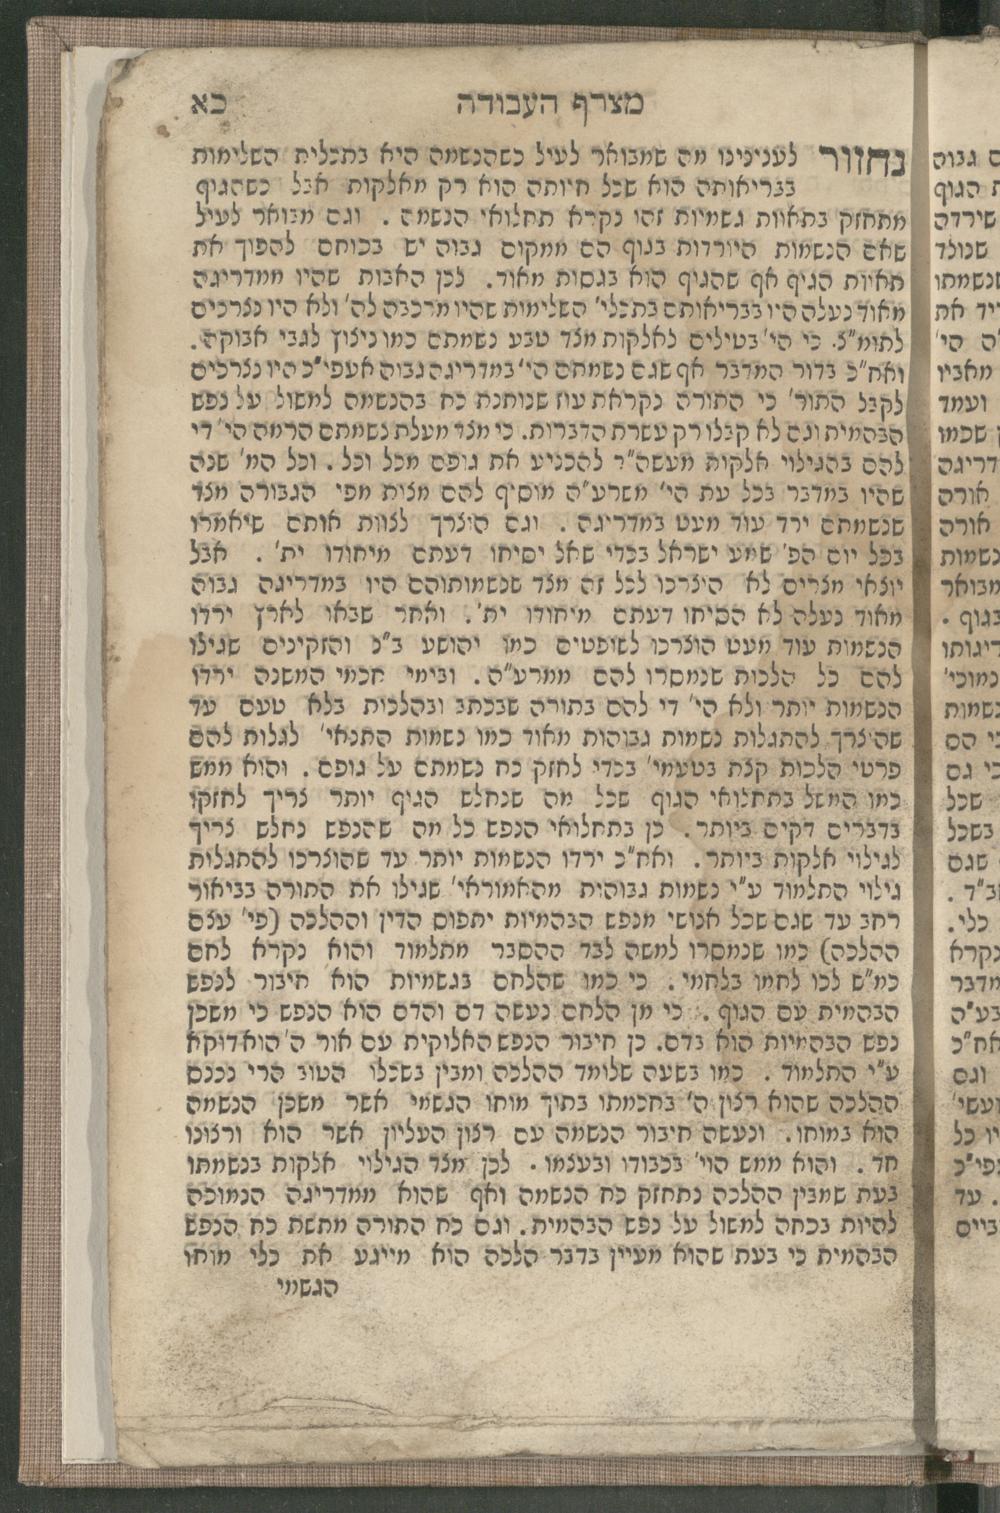 מצרף העבודה כא
נחזור לענינינו מה שמבואר לעיל כשהנשמה היא בתכלית השלימות
בבריאותה הוא שכל חיותה הוא רק מאלקות אבל כשהגוף
מתחזק בתאות גשמיות זהו נקרא תחלואי הנשמה. וגם מבואר לעיל
שאם הנשמות היורדות בגוף הם ממקום גבוה יש בכוחם להפוך את
תאות הגוף אף שהגוף הוא בגסות מאוד. לכן האבות שהיו ממדריגה
מאוד נעלה היו בבריאותם בתכלי' השלימות שהיו מרכבה לה' ולא היו צרכים
לתומ"צ. כי הי' בטילים לאלקות מצד טבע נשמתם כמו ניצוץ לגבי אבוקה.
ואח"כ בדור המדבר אף שגם נשמתם הי' במדריגה גבוה אעפי"כ היו צרכים
לקבל התור' כי התורה נקראת עוז שנותנת כח בהנשמה למשול על נפש
הבהמית וגם לא קבלו רק עשרת הדברות. כי מצד מעלת נשמתם הרמה הי' די
להם בהגילוי אלקות מעשה"ד להכניע את גופם מכל וכל. וכל המ' שנה
שהיו במדבר בכל עת הי' משרע"ה מוסיף להם מצות מפי הגבורה מצד
שנשמתם ירד עוד מעט במדריגה. וגם הוצרך לצוות אותם שיאמרו
בכל יום הפ' שמע ישראל בכדי שאל יסיחו דעתם מיחודו ית'. אבל
יוצאי מצרים לא הוצרכו לכל זה מצד שנשמותיהם היו במדריגה גבוה
מאוד נעלה לא הסיחו דעתם מיחודו ית'. ואחר שבאו לארץ ירדו
הנשמות עוד מעט הוצרכו לשופטים כמו יהושע ב"נ והזקינים שגילו
להם כל הלכות שנמסרו להם ממרע"ה. ובימי חכמי המשנה ירדו
הנשמות יותר ולא הי' די להם בתורה שבכתב ובהלכות בלא טעם עד
שהוצרך להתגלות נשמות גבוהות מאוד כמו נשמות התנאי' לגלות להם
פרטי הלכות קצת בטעמי' בכדי לחזק כח נשמתם על גופם. והוא ממש
כמו המשל בתחלואי הגוף שכל מה שנחלש הגוף יותר צריך לחזקו
בדברים דקים ביותר. כן בתחלואי הנפש כל מה שהנפש נחלש צריך
לגילוי אלקות ביותר. ואח"כ ירדו הנשמות יותר עד שהוצרכו להתגלות
גילוי התלמוד ע"י נשמות גבוהות מהאמוראי' שגילו את התורה בביאור
רחב עד שגם שכל אנושי מנפש הבהמיות יתפוס הדין וההלכה (פי' עצם
ההלכה) כמו שנמסרו למשה לבד ההסבר מתלמוד והוא נקרא לחם
כמ"ש לכו לחמו בלחמי. כי כמו שהלחם בגשמיות הוא חיבור לנפש
הבהמית עם הגוף. כי מן הלחם נעשה דם והדם הוא הנפש כי משכן
נפש הבהמיות הוא בדם. כן חיבור הנפש האלוקית עם אור ה' הוא דוקא
ע"י התלמוד. כמו בשעה שלומד ההלכה ומבין בשכלו הטוב הרי נכנס
ההלכה שהוא רצון ה' בחכמתו בתוך מוחו הגשמי אשר משכן הנשמה
הוא במוחו. ונעשה חיבור הנשמה עם רצון העליון אשר הוא ורצונו
חד. והוא ממש הוי' בכבודו ובעצמו. לכן מצד הגילוי אלקות בנשמתו
בעת שמבין ההלכה נתחזק כח הנשמה ואף שהוא ממדריגה הנמוכה
להיות בכחה למשול על נפש הבהמית. וגם כח התורה מתשת כח הנפש
הבהמית כי בעת שהוא מעיין בדבר הלכה הוא מייגע את כלי מוחו
הגשמי